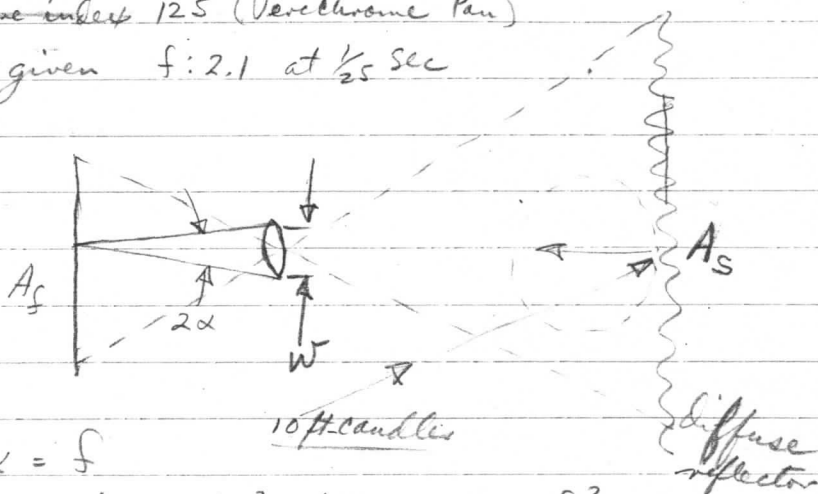 index 125 (Verichrome Pan)
given f:2.1 at 1/25 sec
A_f
2α
W
A_s
10 ft-candles
diffuse
reflector
= f